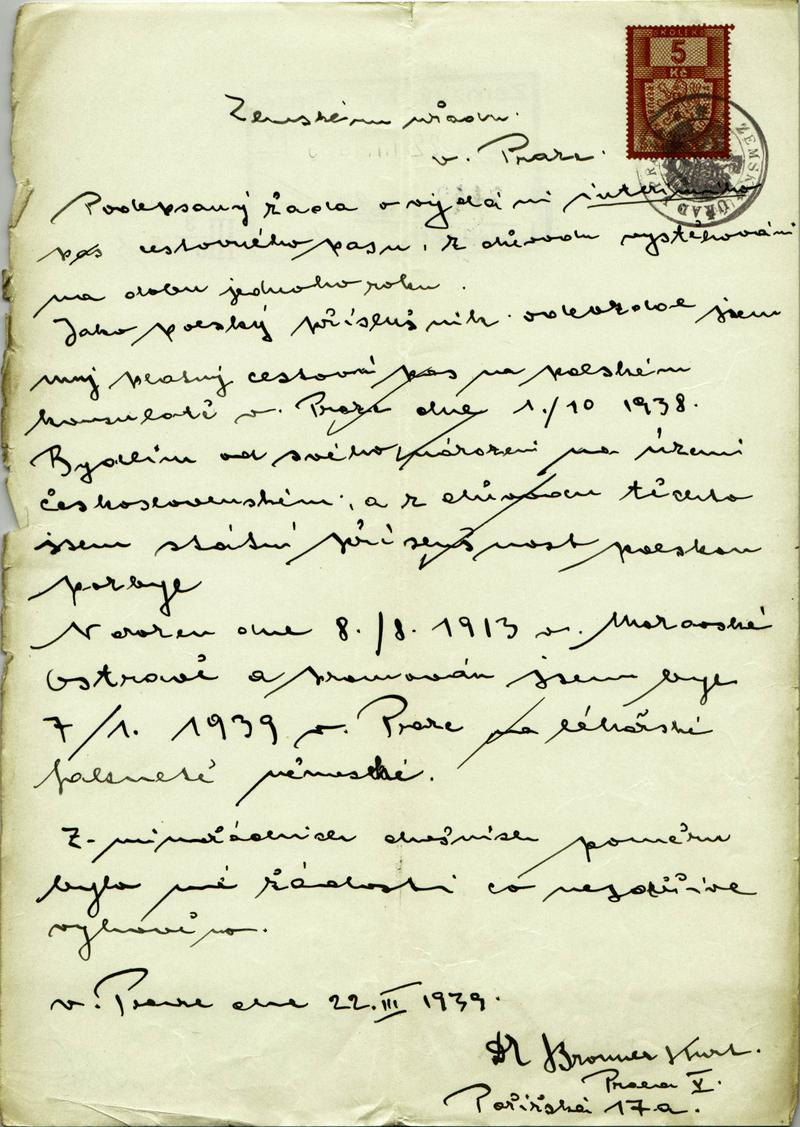 KOLEK
5
Kč
ZEMSKÝ ÚŘAD
Zemskému úřadu.
v. Praze.
Podepsaný žada o vydáni interimního
pas cestovného pasu, z důvodu vystěhování
na dobu jednoho roku.
Jako polský příslušnik odevzdal jsem
muj platný cestovní pas na polském
konsulatě v. Praze dne 1./10 1938.
Bydlím od svého narozeni na území
československém, a z důvodu těchto
jsem státní příslušnost polskou
pozbyl
Narozen dne 8./8. 1913 v. Moravské
Ostravě a promován jsem byl
7/1. 1939 v. Praze na lékářské
fakultě německé.
Z mimořádnich dnešnich poměru
bylo mé žádosti co nejdříve
vyhověno.
v. Praze dne 22.III 1939.
Dr Bronner Kurt.
Praha V.
Pařížská 17a.